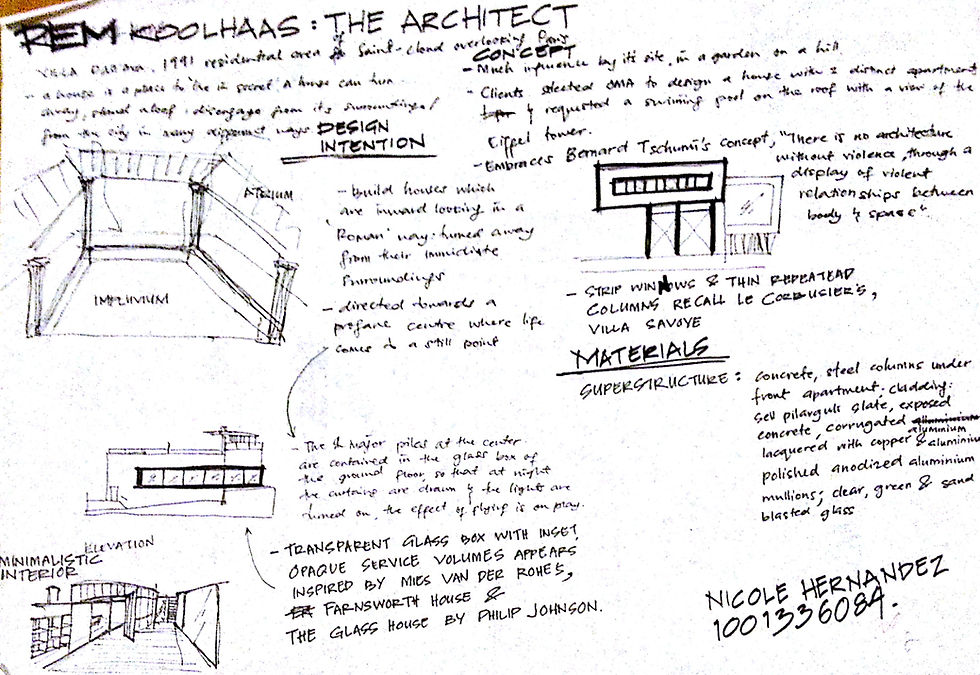 REM KOOLHAAS: THE ARCHITECT
VILLA DALL'AVA, 1991 residential area of Saint-cloud overlooking Paris
- a house is a place to live in secret. A house can turn
away, stand aloof, disengage from its surroundings /
from the city in many different ways
DESIGN
INTENTION
ATERIUM
IMPLUVIUM
- build houses which
are inward looking in a
'Roman' way: turned away
from their immediate
surroundings
- directed towards a
profane centre where life
comes to a still point
CONCEPT
- Much influence by its site, in a garden on a hill
- Clients selected OMA to design a house with 2 distinct apartment
& requested a swiming pool on the roof with a view of the
Eiffel tower.
- Embraces Bernard Tschumi's concept, "There is no architecture
without violence, through a
display of violent
relationships between
body & space".
- STRIP WINDOWS & THIN REPEATEAD
COLUMNS RECALL LE CORBUSIER'S,
VILLA SAVOYE
MATERIALS
SUPERSTRUCTURE: concrete, steel columns under
front apartment. cladding:
slate, exposed
concrete, corrugated aluminium
lacquered with copper & aluminium
polished anodized aluminium
mullions; clear, green & sand
blasted glass
- The major pilas at the center
are contained in the glass box of
the ground floor, so that at night
the curtains are drawn & the light are
turned on, the effect of flying is on play.
ELEVATION
- TRANSPARENT GLASS BOX WITH INSET,
OPAQUE SERVICE VOLUMES APPEARS
INSPIRED BY MIES VAN DER ROHE'S,
FARNSWORTH HOUSE &
THE GLASS HOUSE BY PHILIP JOHNSON.
MINIMALISTIC
INTERIOR
NICOLE HERNANDEZ
1001336084.